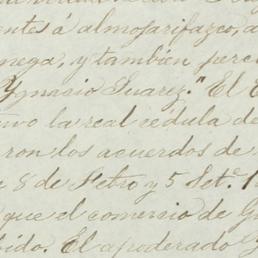 ntes á almojarifazco, a
nega, y tambien perc
Ygnacio Suarez." El
tuvo la real cedula de
ron los acuerdos de
8 de Febro y 5 Set.
que el comercio de G
bido. El apoderado